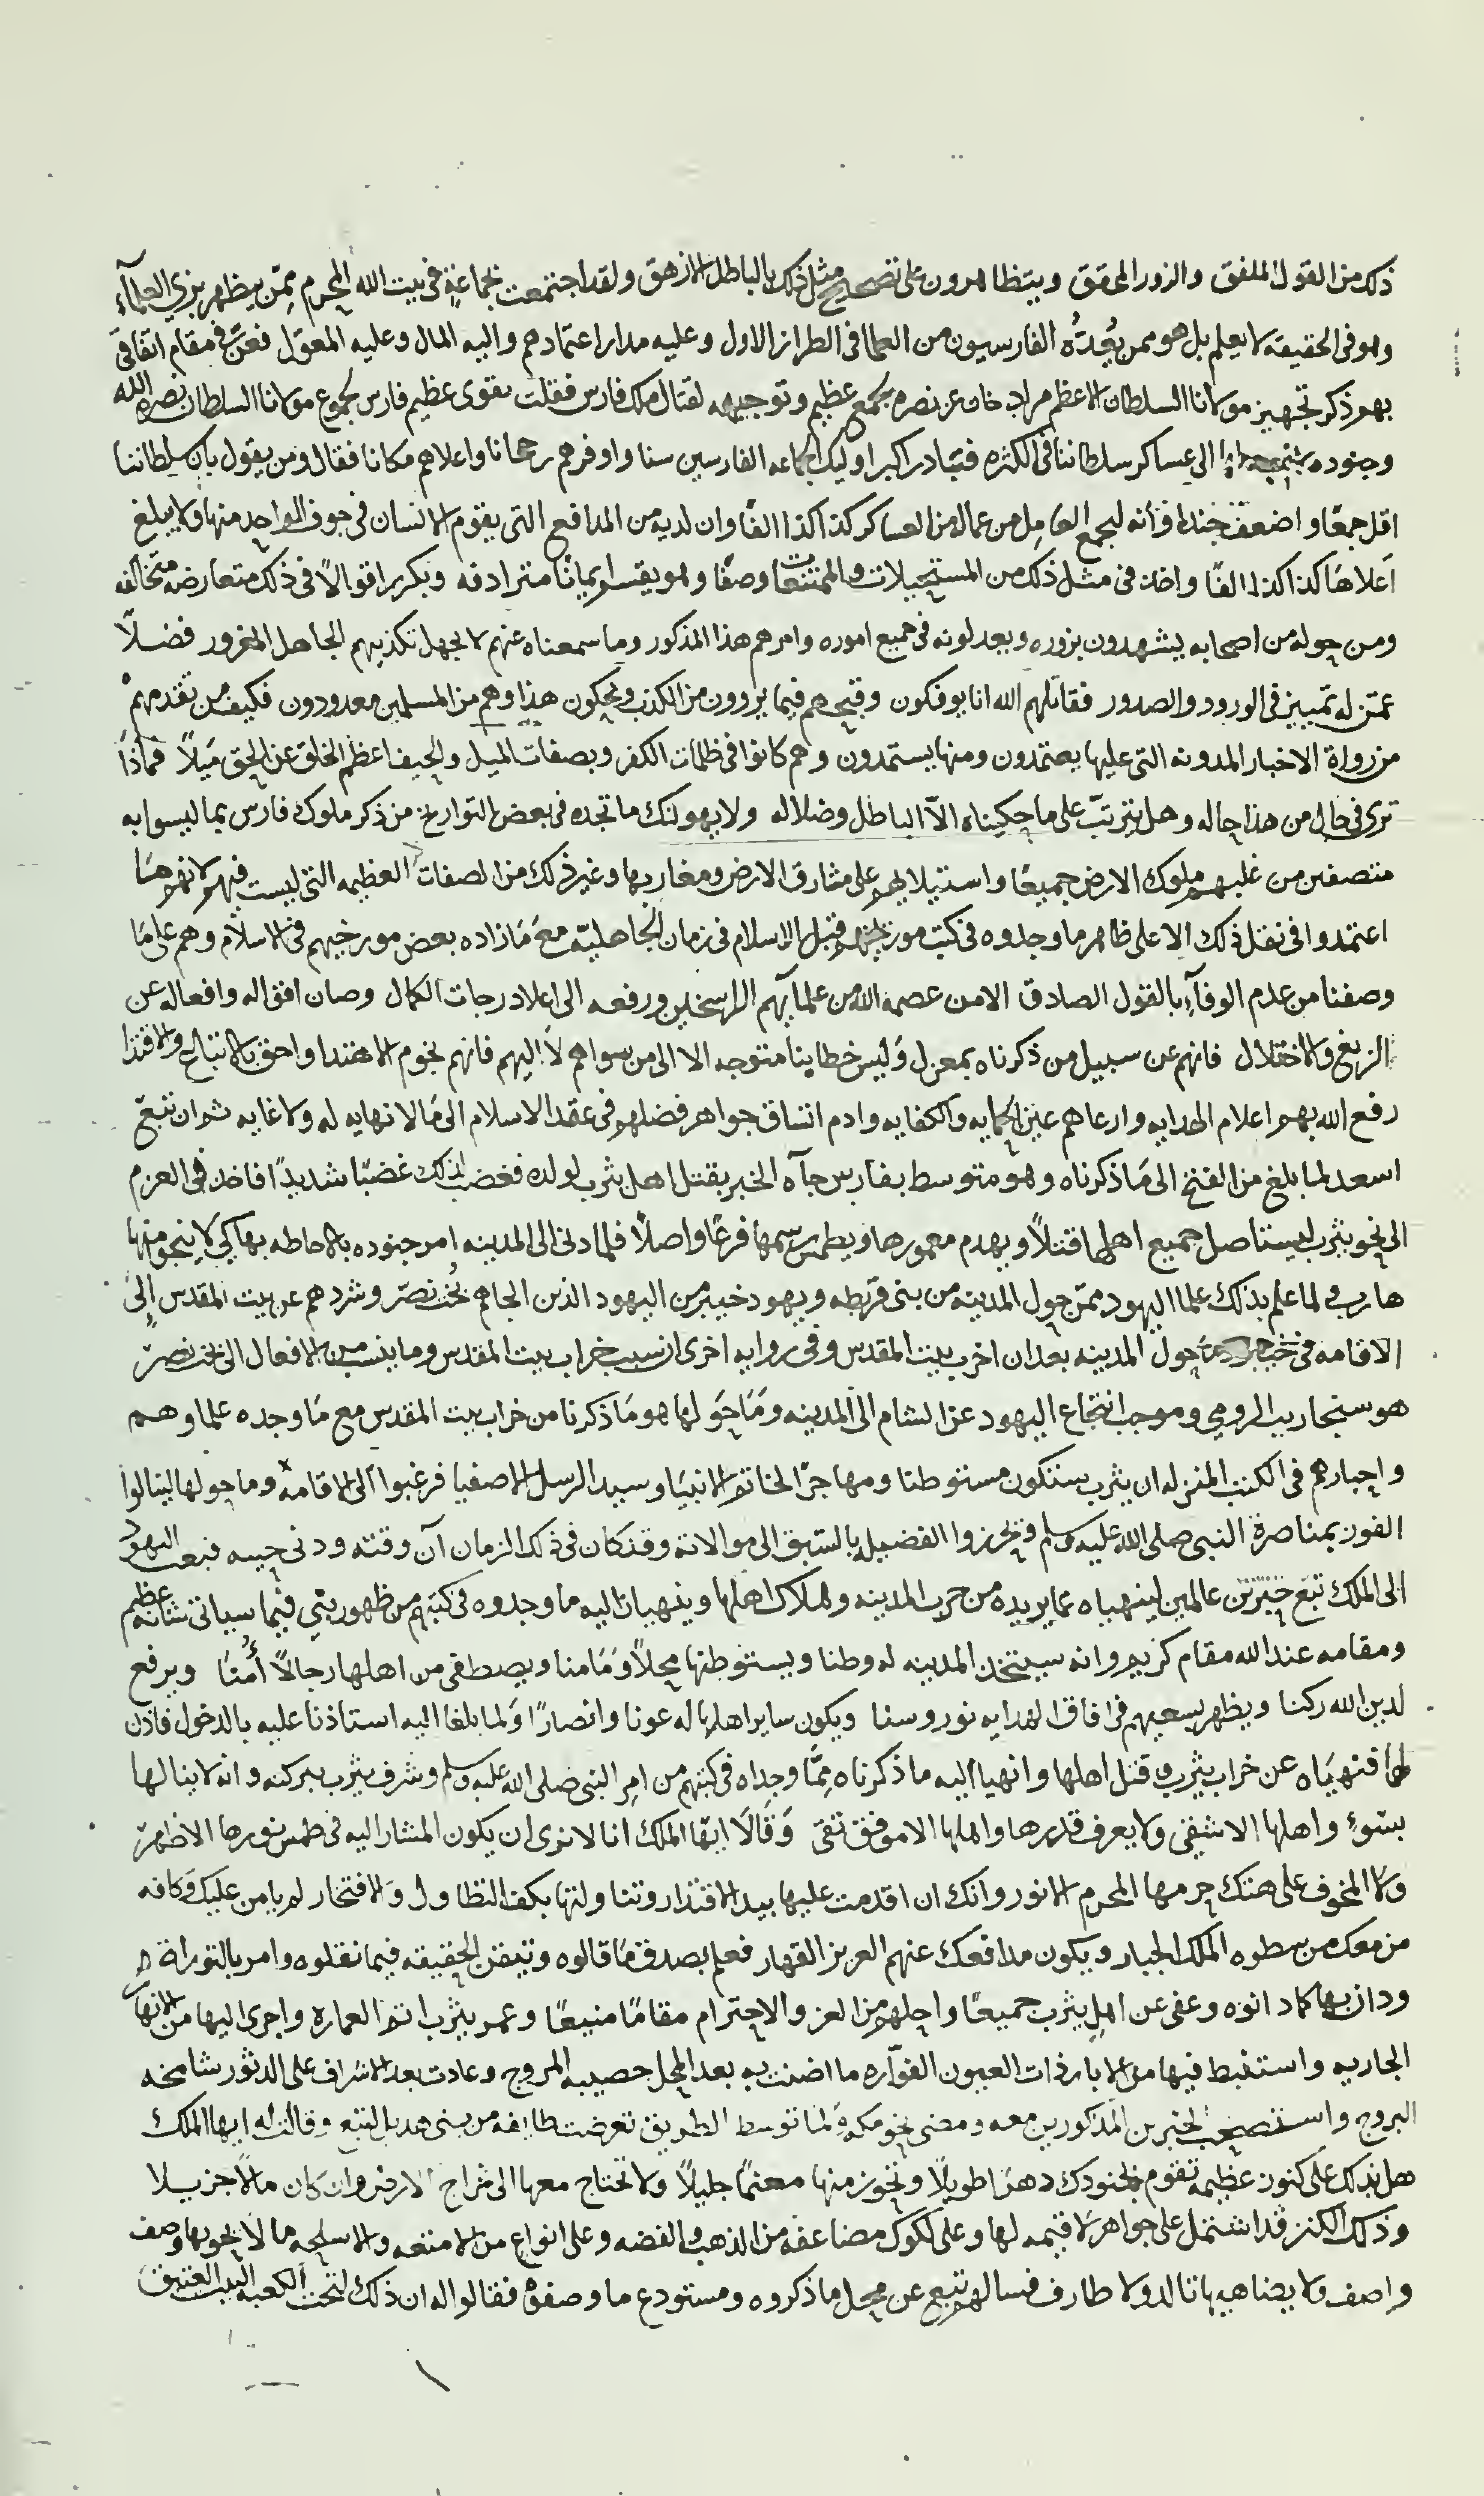 ذلك من القول الملفق والزور المحقق ويتظاهرون على تصحيح مثل ذلك بالباطل الازهق ولقد اجتمعت بجماعة في بيت الله المحرم ممن يظهر بزي العلماء
وهو في الحقيقة لا يعلم بل هو ممن يعده الفارسيون من العلما في الطراز الاول وعليه مدار اعتمادهم واليه المال وعليه المعول فعن في مقام اتفاقي
بهم ذكر تجهيز مولانا السلطان الاعظم مراد خان عز نصره بجمع عظيم وتوجيهه لقتال ملك فارس فقلت يقوى عظيم فارس بجموع مولانا السلطان نصره الله
وجنوده الى عساكر سلطاننا في الكثره فتبادر اكبر اوليك الجماعه الفارسين سنا واوفرهم رجحانا واعلاهم مكانا فقال ومن يقول بان سلطاننا
اقل جمعا واضعف جندا وانه ليجمع العامل من عماله من العساكر كذا كذا الفا وان لديه من المدافع التي يقوم الانسان في جوف الواحد منها ولا يبلغ
اعلاها كذا كذا الفا واخذ في مثل ذلك من المستحيلات والممتنعات وصفا وهو يقسم ايمانا مترادفه ويكرر اقوالا في ذلك متعارضه متخالفه
ومن حوله من اصحابه يشهدون بزوره ويعدلونه في جميع اموره وامرهم هذا المذكور وما سمعناه عنهم لا يجهل تكذيبهم الجاهل المغرور فضلا
عمن له تمييز في الورود والصدور فقاتلهم الله انا يوفكون وقبحهم فيما يروون من الكذب ويحكون هذا وهم من المسلمين معدودون فكيف من تقدمهم
من رواة الاخبار المدونه التي عليها يعتمدون ومنها يستمدون وهم كانوا في ظلمات الكفر وبصفات الميل والحيف اعظم الخلق عن الحق ميلا فماذا
ترى في حال من هذا حاله وهل يترتب على ما حكيناه الا الباطل وضلاله ولا يهولنك ما تجده في بعض التواريخ من ذكر ملوك فارس بما ليسوا به
متصفين من غلبهم ملوك الارض جميعا واستيلايهم على مشارق الارض ومغاربها وغير ذلك من الصفات العظيمه التي ليست فيهم لانهم
اعتمدوا في نقل ذلك الا على ظاهر ما وجدوه في كتب مورخيهم قبل الاسلام في زمان الجاهلية مع ما زاده بعض مورخيهم في الاسلام وهم على ما
وصفنا من عدم الوفاء بالقول الصادق الا من عصمه الله من علمايهم الراسخين ورفعه الى اعلا درجات الكمال وصان اقواله وافعاله عن
الزيغ والاختلال فانهم عن سبيل من ذكرناه بمعزل وليس خطابنا متوجه الا الى من سواهم لا اليهم فانهم نجوم الاهتدا واحق بالاتباع والاقتدا
رفع الله بهم اعلام الهدايه وارعاهم عين الحمايه والكفايه وادام اتساق جواهر فضلهم في عقد الاسلام الى ما لا نهايه له ولا غايه ثم ان تبع
اسعد لما بلغ من الفتح الى ما ذكرناه وهو متوسط بفارس جاه الخبر بقتل اهل يثرب لولده فغضب لذلك غضبا شديدا فاخذ في العزم
الى نحو يثرب ليستاصل جميع اهلها قتلا ويهدم معمورها ويطمس رسمها فرعا واصلا فلما دنى الى المدينه امر جنوده بالاحاطه بها كي لا ينجو منها
هارب لما علم بذلك علما اليهود ممن حول المدينه من بني قريظه ويهود خيبر من اليهود الذين الجاهم بخت نصر وشردهم عن بيت المقدس الى
الاقامه في حول المدينه بعد ان اخرب بيت المقدس وفي روايه اخرى ان سبب خراب بيت المقدس وما ينسب من الافعال الى بخت نصر
هو سنحاريب الرومي وموجب انتجاع اليهود عن الشام الى المدينه وما حولها هو ما ذكرنا من خراب بيت المقدس مع ما وجده علماوهم
واحبارهم في الكتب المنزله ان يثرب ستكون مستوطنا ومهاجرا لخاتم الانبيا وسيد الرسل الاصفيا فرغبوا الى الاقامة وما حولها لينالوا
الفوز بمناصرة النبي صلى الله عليه وسلم ويحرزوا الفضيله بالسبق الى موالاته وقد كان في ذلك الزمان آن وقته ودنى حينه فبعث اليهود
الى الملك تبع حبرين عالمين لينهياه عما يريده من حرب المدينه وهلاك اهلها وينهيان اليه ما وجدوه في كتبهم من ظهور نبي فيما سياتي شانه عظيم
ومقامه عند الله مقام كريم وانه سيتخذ المدينه له وطنا ويستوطنها محلا ومامنا ويصطفي من اهلها رجالا امنا ويرفع
لدين الله ركنا ويظهر بسعيهم في افاق الهدايه نور وسنا ويكون ساير اهلها له عونا وانصارا ولما بلغا اليه استاذنا عليه بالدخول فاذن
لهما فنهياه عن خراب يثرب وقتل اهلها وانهيا اليه ما ذكرناه مما وجداه في كتبهم من امر النبي صلى الله عليه وسلم وشرف يثرب ببركته وانه لا ينالها
بسوء واهلها الا شقي ولا يعرف قدرها واهلها الا موفق تقي وقالا ايها الملك انا لا نرى ان يكون المشار اليه في طمس نورها الاظهر
ولا المخوف على هتك حرمها المحرم الانور وانك ان اقدمت عليها بيد الاقتدار ونلتها بكف التطاول والافتخار لم يامن عليك وكافه
من معك من سطوه الملك الجبار ويكون مدافعك عنهم العزيز القهار فعلم بصدق ما قالوه وتيقن الحقيقه فيما نقلوه وامر بالتوراة
ودان بها كما دانوه وعفى عن اهل يثرب جميعا واحلهم من العز والاحترام مقاما منيعا وعمر يثرب اتم العماره واجرى اليها من الانهار
الجاريه واستنبط فيها من الابار ذات العيون الفواره ما اضنت به بعد المحل خصيبه المروج وعادت بعد الاشراف على الدثور شامخه
البروج واستصحب الحبرين المذكورين معه ومضى نحو مكه لما توسط الطريق تعرضت طايفه من بني هديل لتبع وقالت له ايها الملك
هل ندلك على كنوز عظيمه تقوم بجنودك دهرا طويلا وتحوز منها مغنما جليلا ولا تحتاج معها الى خراج الارض وان كان مالا جزيلا
وذلك الكنز قد اشتمل على جواهر لا قيمه لها وعلى لكوك مضاعفه من الذهب والفضه وعلى انواع من الامتعه والاسلحه ما لا يحويها وصف
واصف ولا يضاهيها تالد ولا طارف فسالهم تبع عن محل ما ذكروه ومستودع ما وصفوه فقالوا له ان ذلك لتحت الكعبه البيت العتيق